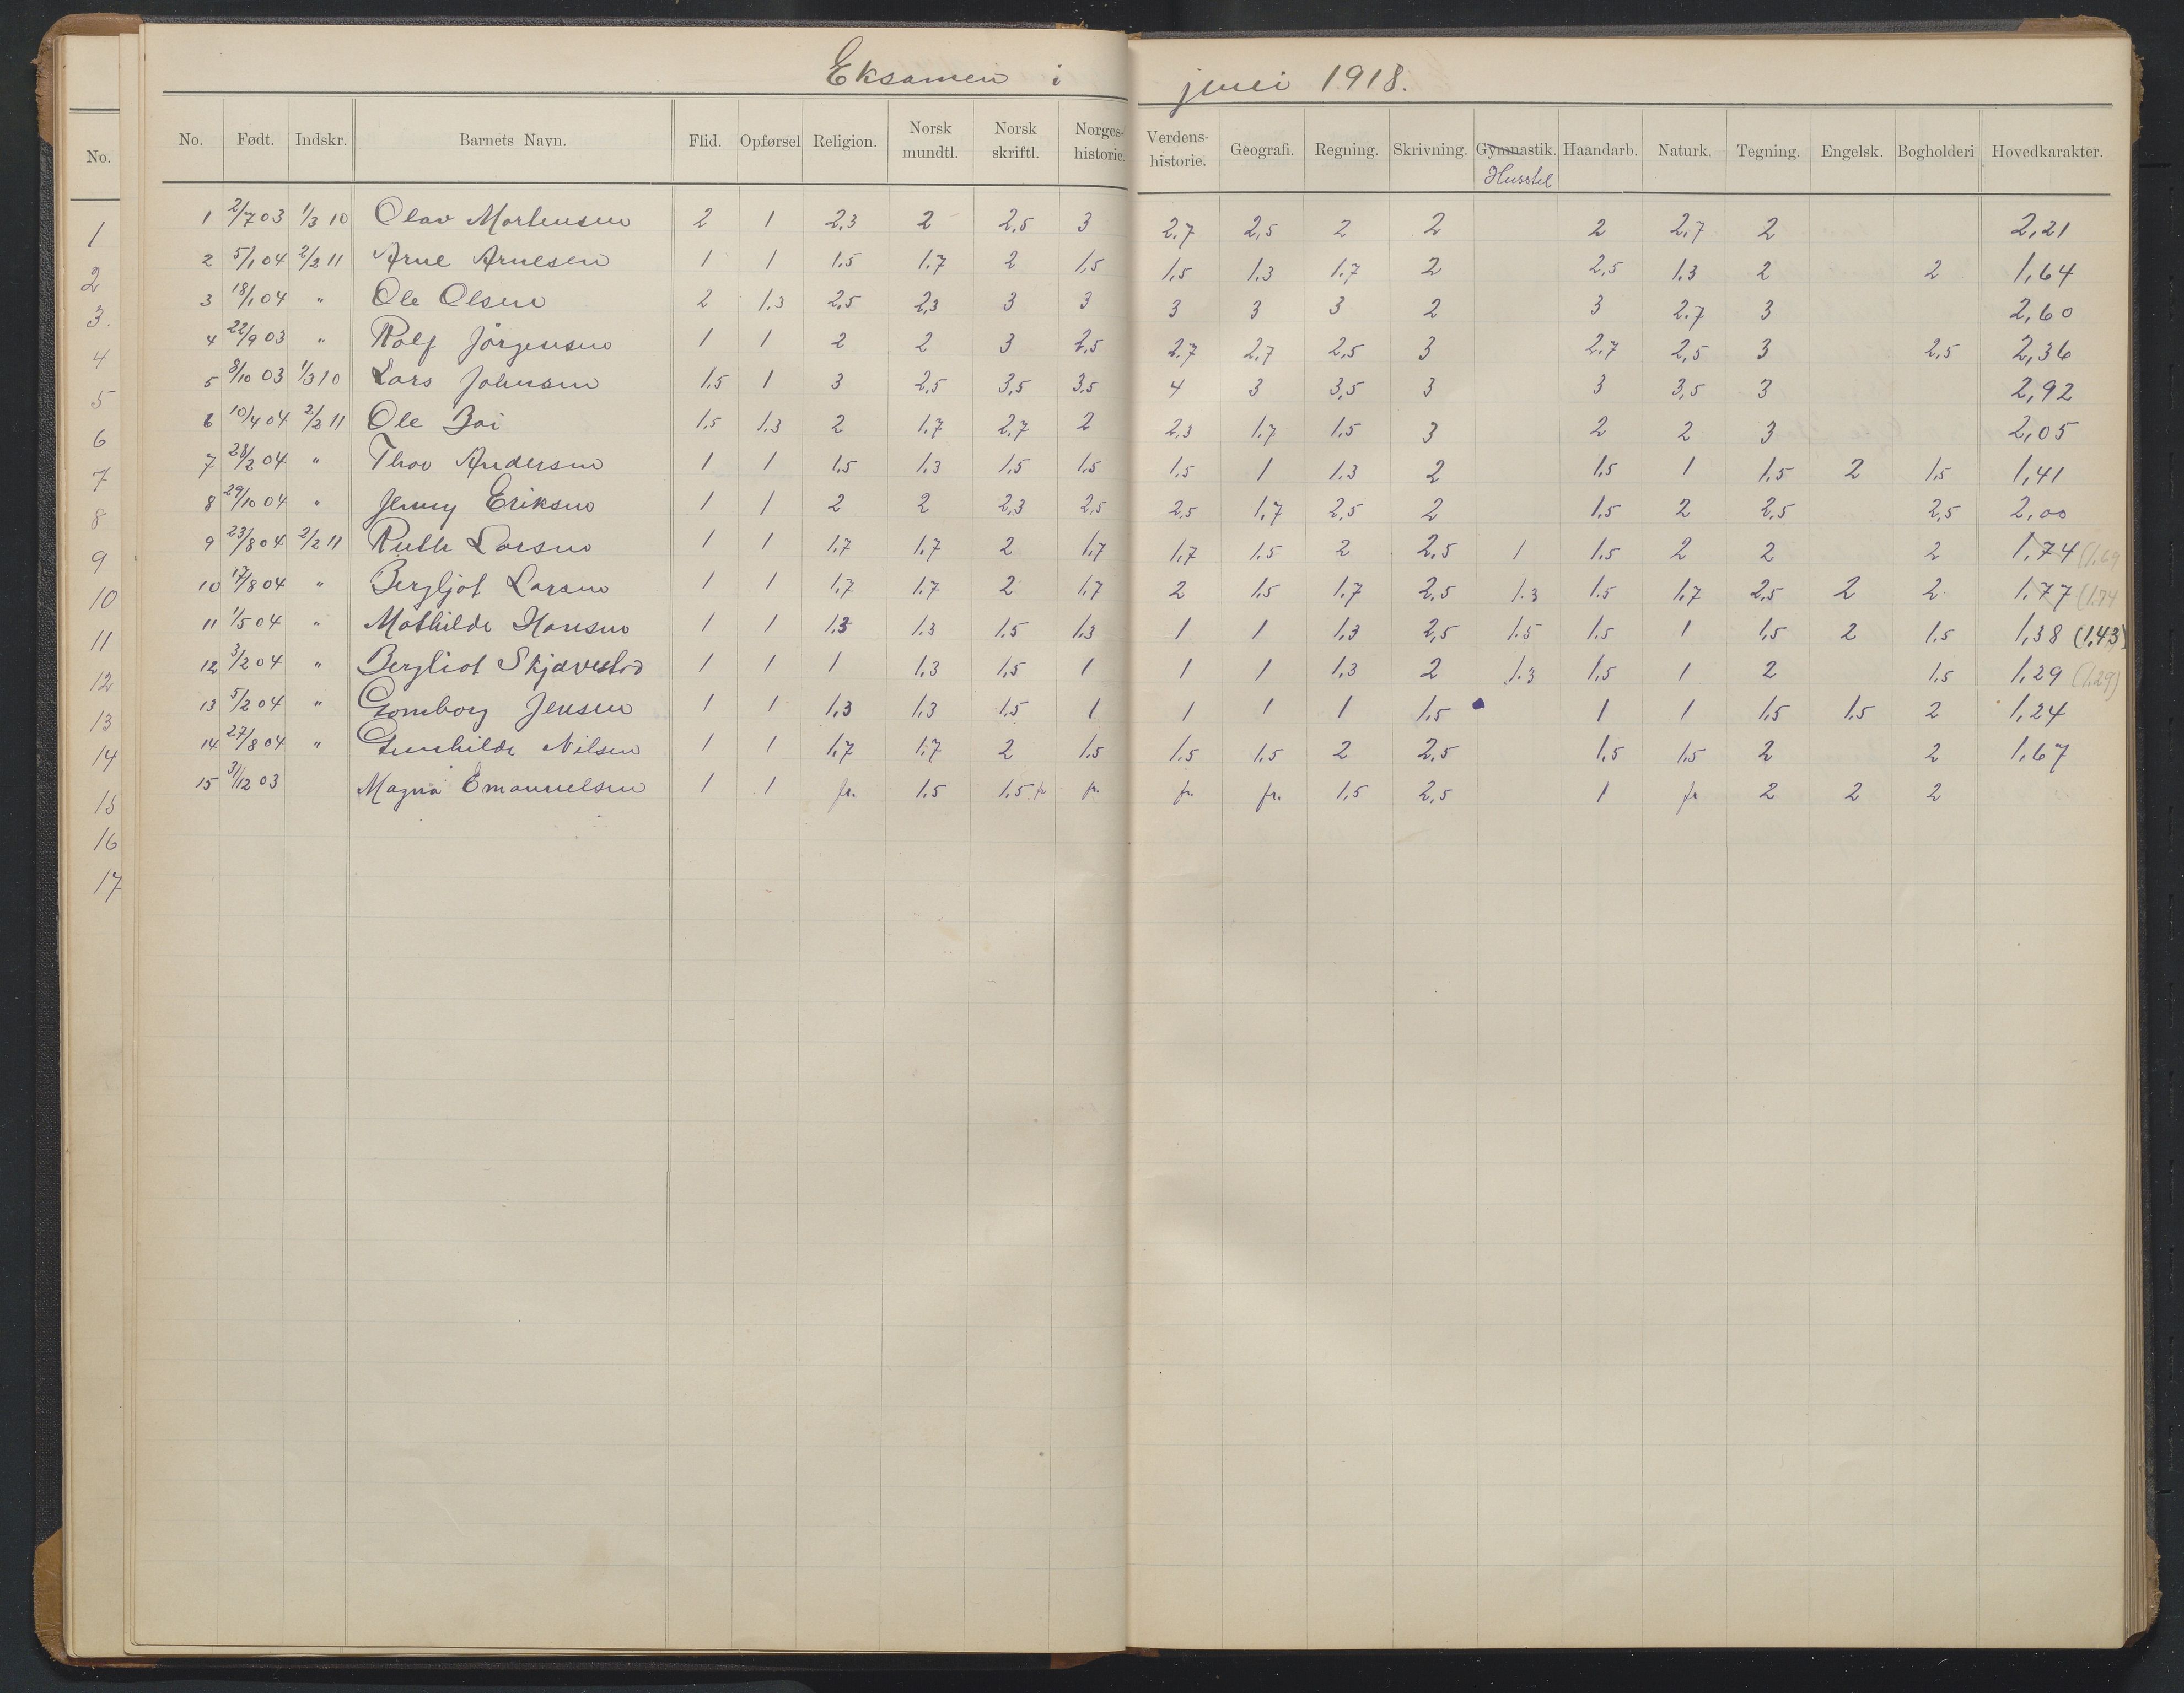 Eksamen i juni 1918.
No. Født. Indskr. Barnets Navn. Flid. Opførsel Religion. Norsk mundtl. Norsk skriftl. Norges-historie. Verdens-historie. Geografi. Regning. Skrivning. Gymnastik. Haandarb. Naturk. Tegning. Engelsk. Bogholderi Hovedkarakter.
Husstel
1 2/7 03 1/3 10 Olav Mortensen 2 1 2,3 2 2,5 3 2,7 2,5 2 2 2 2,7 2 2,21
2 5/1 04 2/2 11 Arne Arnesen 1 1 1,5 1,7 2 1,5 1,5 1,3 1,7 2 2,5 1,3 2 2 1,64
3 18/1 04 " Ole Olsen 2 1,3 2,5 2,3 3 3 3 3 3 2 3 2,7 3 2,60
4 22/9 03 " Rolf Jörgensen 1 1 2 2 3 2,5 2,7 2,7 2,5 3 2,7 2,5 3 2,5 2,36
5 8/10 03 1/3 10 Lars Johnsen 1,5 1 3 2,5 3,5 3,5 4 3 3,5 3 3 3,5 3 2,92
6 10/4 04 2/2 11 Ole Boi 1,5 1,3 2 1,7 2,7 2 2,3 1,7 1,5 3 2 2 3 2,05
7 28/2 04 " Thor Andersen 1 1 1,5 1,3 1,5 1,5 1,5 1 1,3 2 1,5 1 1,5 2 1,5 1,41
8 29/10 04 " Jenny Eriksen 1 1 2 2 2,3 2,5 2,5 1,7 2,5 2 1,5 2 2,5 2,5 2,00
9 23/8 04 2/2 11 Ruth Larsen 1 1 1,7 1,7 2 1,7 1,7 1,5 2 2,5 1 1,5 2 2 2 1,74 (1,69
10 17/8 04 " Bergljot Larsen 1 1 1,7 1,7 2 1,7 2 1,5 1,7 2,5 1.3 1,5 1,7 2,5 2 2 1,77 (1,74
11 1/5 04 " Mathilde Hansen 1 1 1,3 1,3 1,5 1,3 1 1 1,3 2,5 1.5 1,5 1 1,5 2 1,5 1,38 (1,43)
12 3/2 04 " Bergliot Skjævestad 1 1 1 1,3 1,5 1 1 1 1,3 2 1.3 1,5 1 2 1,5 1,29 (1,29)
13 5/2 04 " Gomborg Jensen 1 1 1,3 1,3 1,5 1 1 1 1 1,5 1 1 1,5 1,5 2 1,24
14 27/8 04 " Gunhilde Nilsen 1 1 1,7 1,7 2 1,5 1,5 1,5 2 2,5 1,5 1,5 2 2 1,67
15 31/12 03 Magna Emanuelsen 1 1 fr. 1,5 1,5 fr fr. fr. fr. 1,5 2,5 1 fr 2 2 2
No.
1
2
3.
4
5
6
7
8
9
10
11
12
13
14
15
16
17